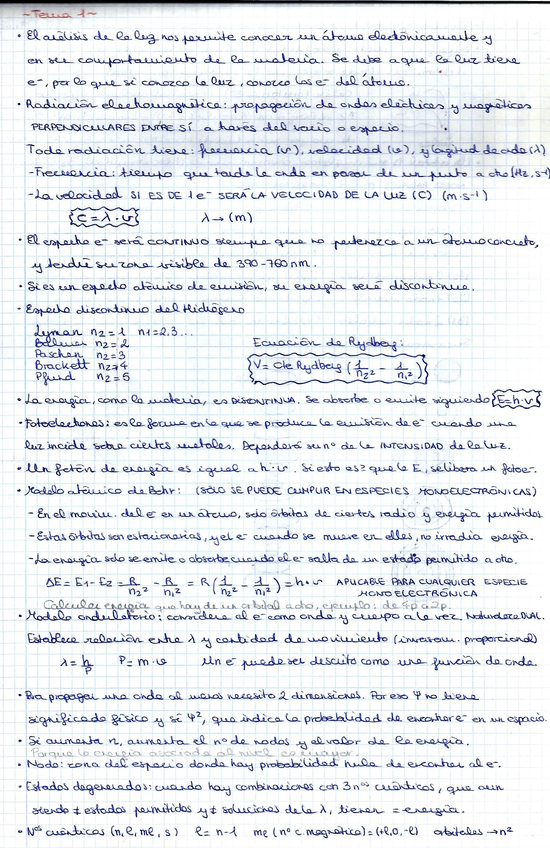 ~Tema 1~
· El análisis de la luz nos permite conocer un átomo electrónicamente y
en su comportamiento de la materia. Se debe a que la luz tiene
e⁻, por lo que si conozco la luz, conozco los e⁻ del átomo.
· Radiación electromagnética: propagación de ondas eléctricas y magnéticas
PERPENDICULARES ENTRE SÍ a través del vacío o espacio.
Toda radiación tiene: frecuencia (ν), velocidad (v), y longitud de onda (λ)
- Frecuencia: tiempo que tarda la onda en pasar de un punto a otro (Hz, s⁻¹)
- La velocidad SI ES DE 1 e⁻ SERÁ LA VELOCIDAD DE LA LUZ (C) (m·s⁻¹)
C = λ · ν λ → (m)
· El espectro e⁻ será CONTINUO siempre que no pertenezca a un átomo concreto,
y tendrá su zona visible de 390-760 nm.
· Si es un espectro atómico de emisión, su energía será discontinua.
· Espectro discontinuo del Hidrógeno
Lyman n₂=1 n1=2,3...
Balmer n₂=2 Ecuación de Rydberg:
Paschen n₂=3
Brackett n₂=4 V= cte Rydberg (1/n₂² - 1/n₁²)
Pfund n₂=5
· La energía, como la materia, es DISCONTINUA. Se absorbe o emite siguiendo E=h·ν
· Fotoelectrones: es la forma en la que se produce la emisión de e⁻ cuando una
luz incide sobre ciertos metales. Dependerá su nº de la INTENSIDAD de la luz.
· Un fotón de energía es igual a h·ν. Si esto es > que la E, se libera un fotoe⁻.
· Modelo atómico de Bohr: (SÓLO SE PUEDE CUMPLIR EN ESPECIES MONOELECTRÓNICAS)
- En el movim. del e⁻ en un átomo, sólo órbitas de ciertos radio y energía permitidos.
- Estas órbitas son estacionarias, y el e⁻ cuando se mueve en ellas, no irradia energía.
- La energía sólo se emite o absorbe cuando el e⁻ salta de un estado permitido a otro.
ΔE = E1 - E2 = R/n₂² - R/n₁² = R (1/n₂² - 1/n₁²) = h·ν APLICABLE PARA CUALQUIER ESPECIE
MONOELECTRÓNICA
Calcular energía que hay de un orbital a otro, ejemplo: de 4p a 2p.
· Modelo ondulatorio: considera al e⁻ como onda y cuerpo a la vez. Naturaleza DUAL.
Establece relación entre λ y cantidad de movimiento (inversam. proporcional)
λ = h/p P = m · v Un e⁻ puede ser descrito como una función de onda
· Para propagar una onda al menos necesito 2 dimensiones. Por eso Ψ no tiene
significado físico y sí Ψ², que indica la probabilidad de encontrar e⁻ en un espacio.
· Si aumenta n, aumenta el nº de nodos y el valor de la energía.
Porque la energía asociada al nivel es mayor.
· Nodo: zona del espacio donde hay probabilidad nula de encontrar al e⁻.
· Estados degenerados: cuando hay combinaciones con 3 nºˢ cuánticos, que aun
siendo ≠ estados permitidos y ≠ soluciones de la λ, tienen = energía.
· Nºˢ cuánticos (n, l, ml, s) l = n-1 ml (nº c. magnético) = (+l, 0, -l) orbitales → n²